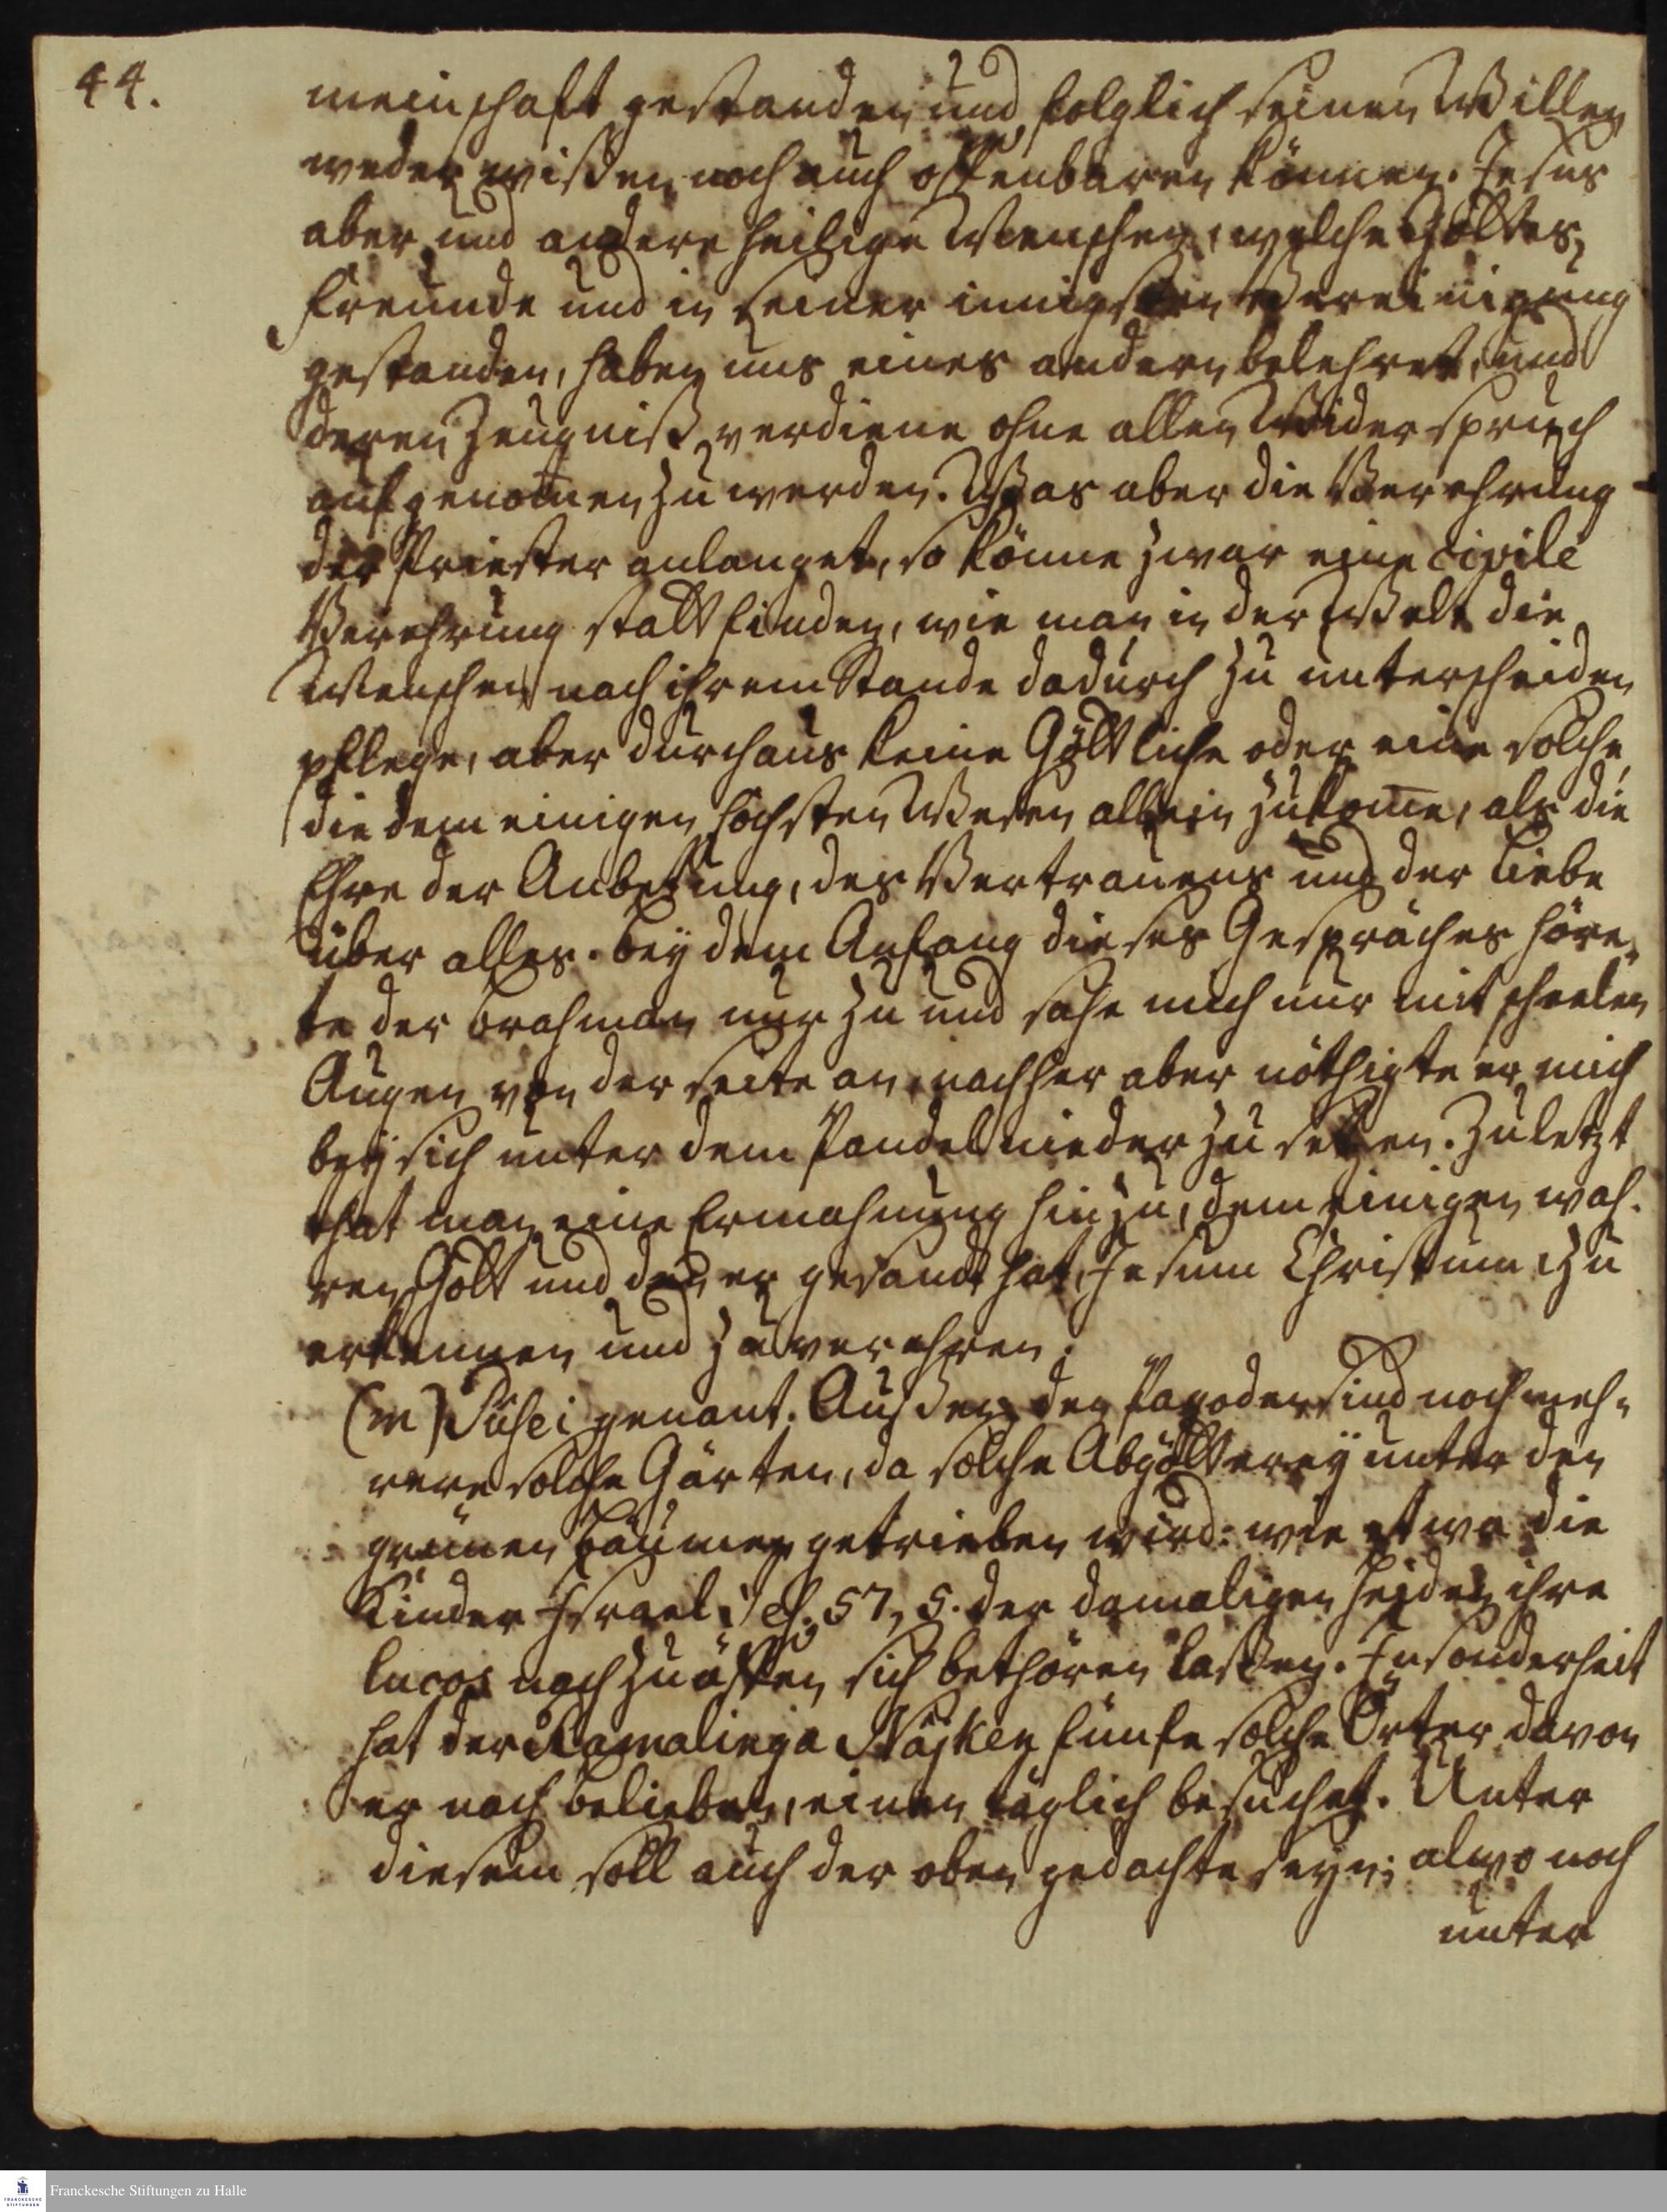 44.
meinschafft gestanden und folglich seinen Willen
weder wißen noch auch offenbaren können. Jesus
aber und andere heilige Menschen, welche Gottes
Freunde und in seiner innigsten Vereinigung
gestanden, haben uns eines andern belehret, und
deren Zeugniß verdiene ohne allen Widerspruch
aufgenom̄en zu werden. Was aber die Verehrung
der Priester anlanget, so könne zwar eine civile
Verehrung statt finden, wie man in der Welt die
Menschen nach ihrem Stande dadurch zu unterscheiden
pflege, aber durchaus keine Göttliche oder eine solche
die dem einigen höchsten Wesen allein zukom̄e, als die
Ehre der Anbetung, des Vertrauens und der Liebe
über alles. Bey dem Anfang dieses Gespräches höre„
te der Brahman nur zu und sahe mich nur mit scheelen
Augen von der seite an, nachher aber nöthigte er mich
bey sich unter dem Pandel nieder zu setzen. Zuletzt
that man eine Ermahnung hinzu, dem einigen wah-
ren Gott und den er gesandt hat, Jesum Christum zu
erkennen und zu verehren.
(m) Púsei genant. Außer den Pagoden sind noch meh„
rere solche Gärten, da solche Abgötterey unter den
grünen Bäumen getrieben wird: wie etwa die
Kinder Israel Jes. 57, 5. der damaligen Heiden ihre
lucos nachzuäffen sich bethören laßen. Insonderheit
hat der Ramalinga Näjken fünfe solche Örter davon
er nach belieben, einen täglich besuchet. Unter
diesem soll auch der oben gedachte seyn; alwo noch
unter
Franckesche Stiftungen zu Halle